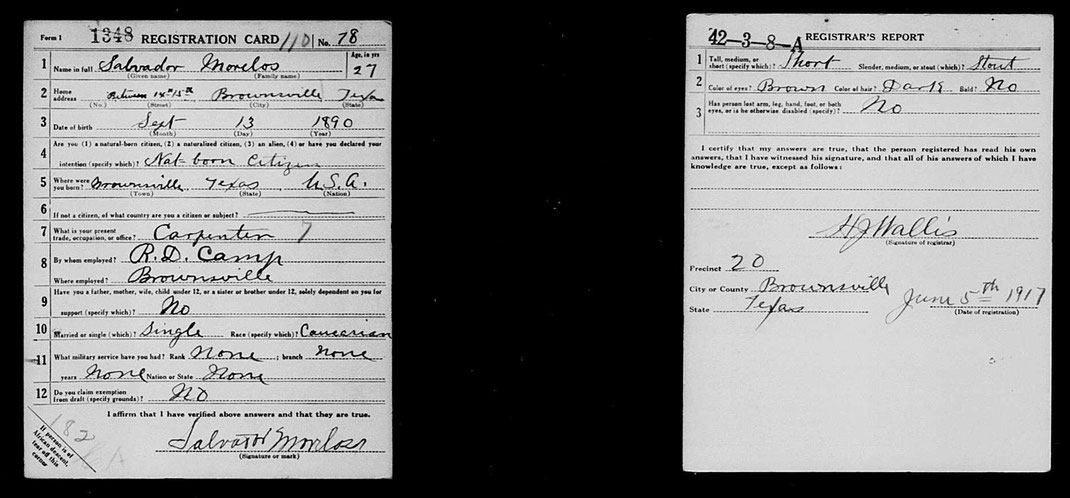 Form 1 1348 REGISTRATION CARD 110 No. 78
1 Name in full Salvador Morelos Age, in yrs 27
(Given name) (Family name)
2 Home address Between 14th 15th Brownsville Texas
(No.) (Street) (City) (State)
3 Date of birth Sept 13 1890
(Month) (Day) (Year)
4 Are you (1) a natural-born citizen, (2) a naturalized citizen, (3) an alien, (4) or have you declared your
intention (specify which)? Nat-born Citizen
5 Where were you born? Brownsville Texas U.S.A.
(Town) (State) (Nation)
6 If not a citizen, of what country are you a citizen or subject?
7 What is your present trade, occupation, or office? Carpenter 7
8 By whom employed? R.D. Camp
Where employed? Brownsville
9 Have you a father, mother, wife, child under 12, or a sister or brother under 12, solely dependent on you for
support (specify which)? No
10 Married or single (which)? Single Race (specify which)? Caucasian
11 What military service have you had? Rank None ; branch None
years None Nation or State None
12 Do you claim exemption from draft (specify grounds)? No
I affirm that I have verified above answers and that they are true.
Salvador Moreloss
(Signature or mark)
If person is of
African descent,
tear off this
corner
182
42-3-8-A REGISTRAR'S REPORT
1 Tall, medium, or short (specify which)? Short Slender, medium, or stout (which)? Stout
2 Color of eyes? Brown Color of hair? Dark Bald? No
3 Has person lost arm, leg, hand, foot, or both
eyes, or is he otherwise disabled (specify)? No
I certify that my answers are true, that the person registered has read his own
answers, that I have witnessed his signature, and that all of his answers of which I have
knowledge are true, except as follows:
HJ Wallis
(Signature of registrar)
Precinct 20
City or County Brownsville
State Texas
June 5th 1917
(Date of registration)